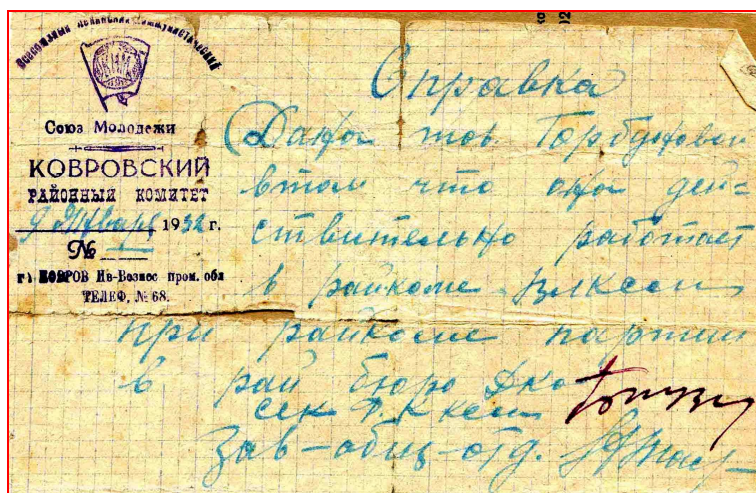 Всесоюзный Ленинский Коммунистический
КИМ
Союз Молодежи
КОВРОВСКИЙ
РАЙОННЫЙ КОМИТЕТ
9 Января 1932 г.
№
г. КОВРОВ Ив-Вознес пром. обл
ТЕЛЕФ. № 68.
Справка
Дана тов. Горбуновой
втом что она дей-
ствительно работает
в райкоме ВЛКСМ
при райкоме партии
в рай бюро Дко
сек
Зав-общ-отд.